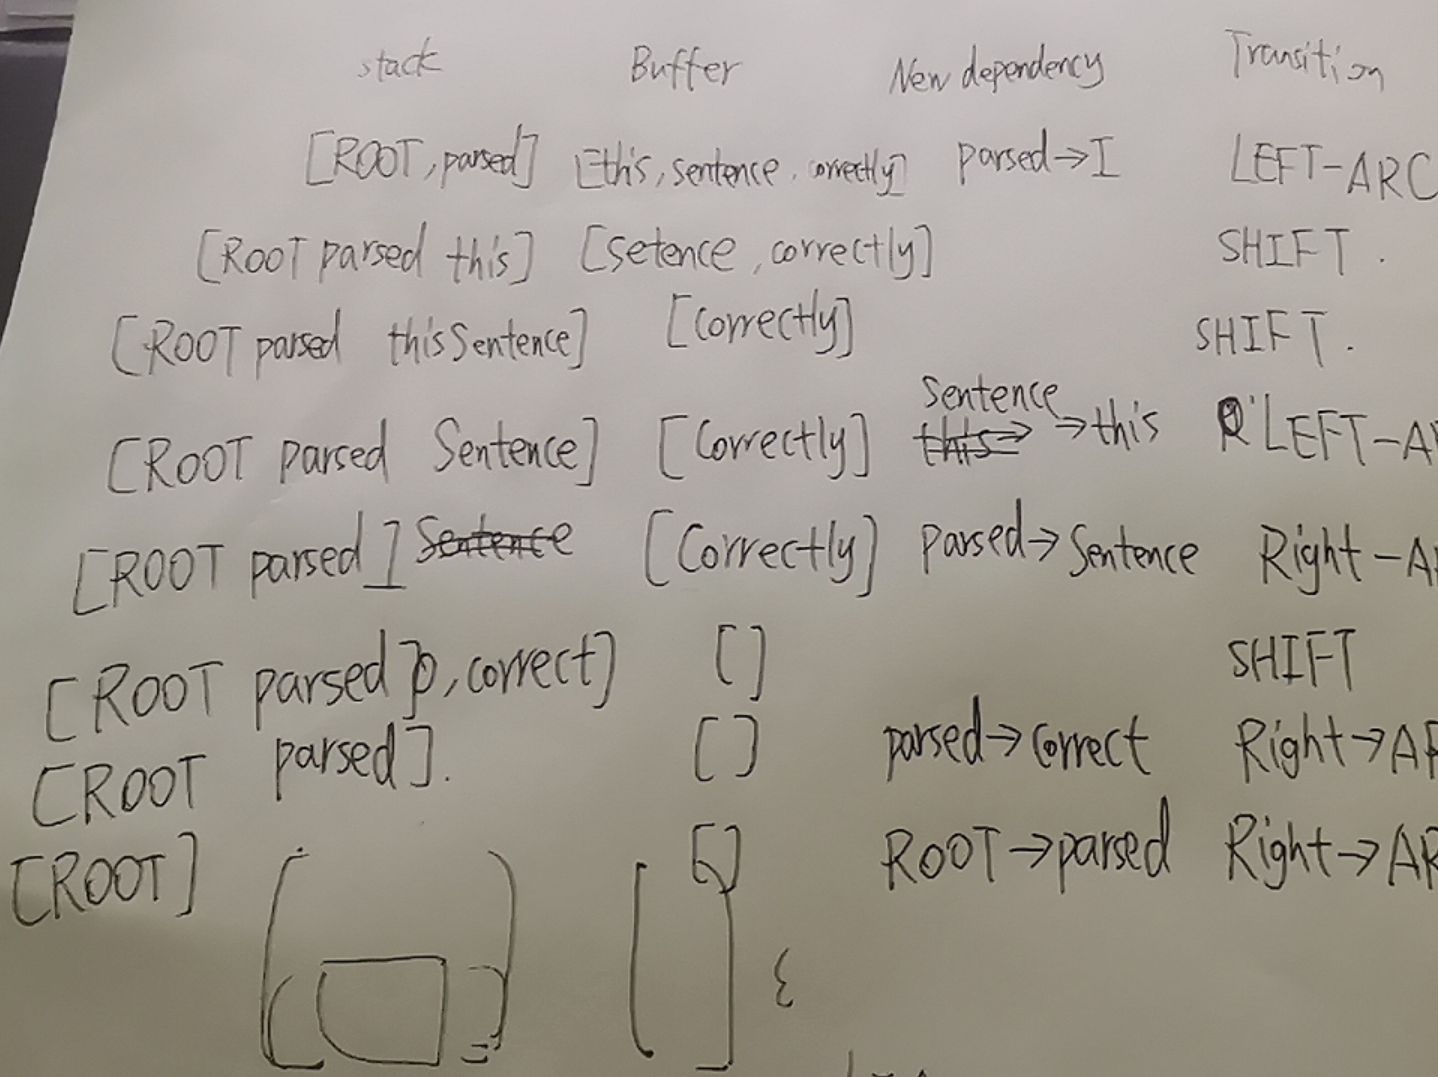 stack Buffer New dependency Transition
[ROOT, parsed] [this, sentence, correctly] parsed→I LEFT-ARC
[ROOT parsed this] [setence, correctly] SHIFT.
[ROOT parsed this Sentence] [correctly] SHIFT.
[ROOT parsed Sentence] [correctly] Sentence →this LEFT-A
[ROOT parsed] [Correctly] parsed→Sentence Right-A
[ROOT parsed], correct] [] SHIFT
[ROOT parsed]. [] parsed→correct Right→AR
[ROOT] [] ROOT→parsed Right→AR